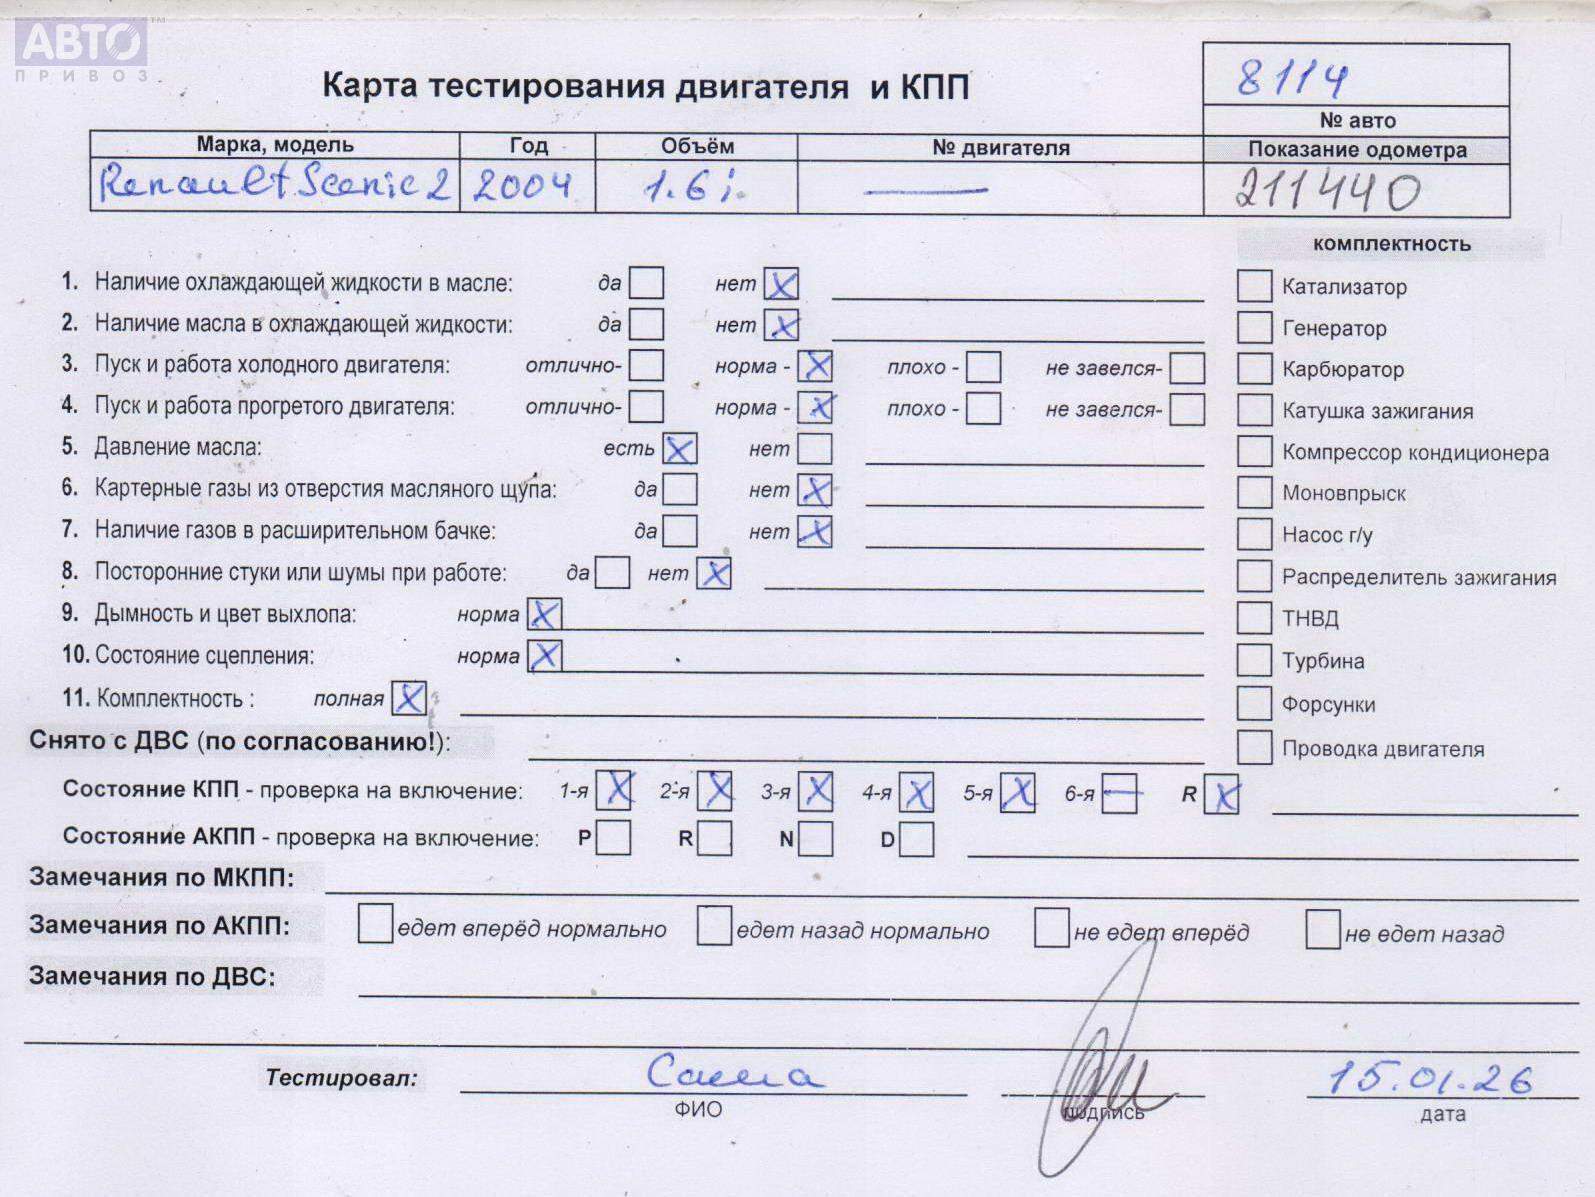 АВТО™
ПРИВОЗ
Карта тестирования двигателя и КПП
8114
№ авто
Марка, модель Год Объём № двигателя Показание одометра
Renault Scenic 2 2004 1.6 i. — 211440
комплектность
1. Наличие охлаждающей жидкости в масле: да нет X Катализатор
2. Наличие масла в охлаждающей жидкости: да нет X Генератор
3. Пуск и работа холодного двигателя: отлично- норма - X плохо - не завелся- Карбюратор
4. Пуск и работа прогретого двигателя: отлично- норма - X плохо - не завелся- Катушка зажигания
5. Давление масла: есть X нет Компрессор кондиционера
6. Картерные газы из отверстия масляного щупа: да нет X Моновпрыск
7. Наличие газов в расширительном бачке: да нет X Насос г/у
8. Посторонние стуки или шумы при работе: да нет X Распределитель зажигания
9. Дымность и цвет выхлопа: норма X ТНВД
10. Состояние сцепления: норма X Турбина
11. Комплектность : полная X Форсунки
Снято с ДВС (по согласованию!): Проводка двигателя
Состояние КПП - проверка на включение: 1-я X 2-я X 3-я X 4-я X 5-я X 6-я — R X
Состояние АКПП - проверка на включение: P R N D
Замечания по МКПП:
Замечания по АКПП: едет вперёд нормально едет назад нормально не едет вперёд не едет назад
Замечания по ДВС:
Тестировал: Саша 15.01.26
ФИО подпись дата